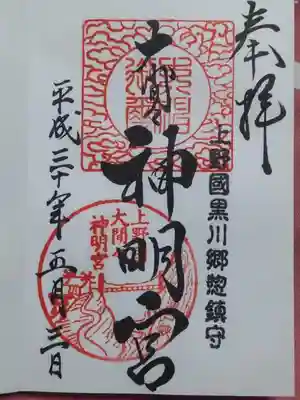 奉拝
上野國黒川郷惣鎮守
大間々
神明宮
平成三十年五月三日
上野
大間
神明宮